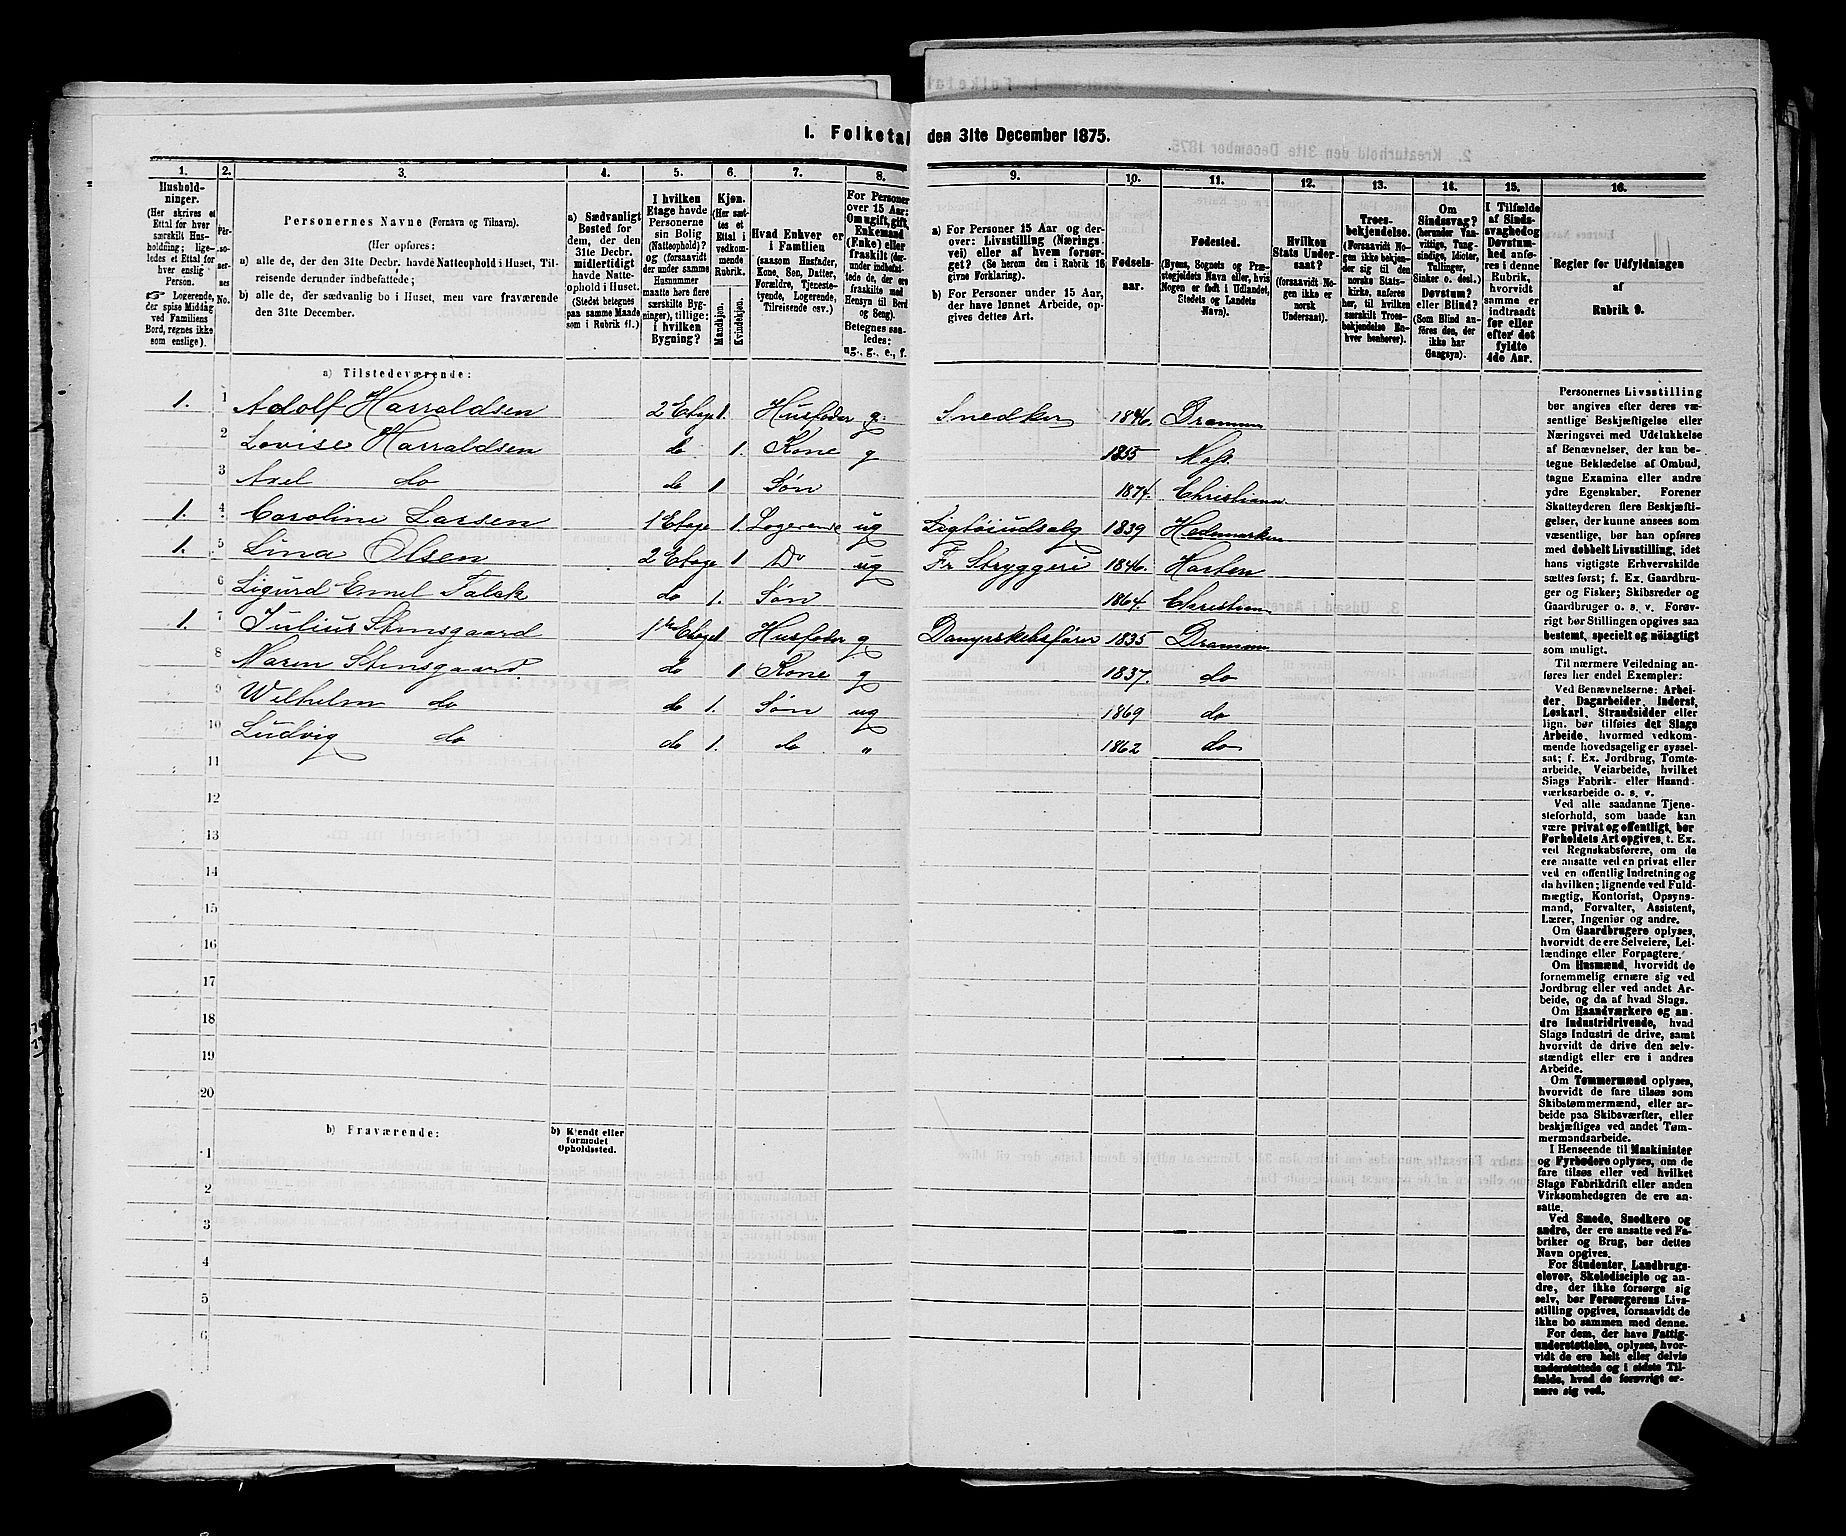 I. Folketal den 31te December 1875.
1. 2. 3. 4. 5. 6. 7. 8. 9. 10. 11. 12. 13. 14. 15. 16.
Husholdninger. (Her skrives et Ettal for hver særskilt Husholdning; ligeledes et Ettal for hver enslig Person. Logerende, der spise Middag ved Familiens Bord, regnes ikke som enslige).
Personernes No.
Personernes Navne (Fornavn og Tilnavn).
(Her opføres:
a) alle de, der den 31te Decbr. havde Natteophold i Huset, Tilreisende derunder indbefattede;
b) alle de, der sædvanlig bo i Huset, men vare fraværende den 31te December.
a) Sædvanligt Bosted for dem, der den 31te Decbr. midlertidigt havde Natteophold i Huset. (Stedet betegnes paa samme Maade som i Rubrik 11.)
I hvilken Etage havde Personerne sin Bolig (Natteophold)? og (forsaavidt der under samme Husnummer maatte høre flere særskilte Bygninger), tillige: i hvilken Bygning?
Kjøn. (Her sættes et Ettal i vedkommende Rubrik.
Mandkjøn. Kvindekjøn.
Hvad Enhver er i Familien
(saasom Husfader, Kone, Søn, Datter, Forældre, Tjenestetyende, Logerende, Tilreisende osv.)
For Personer over 15 Aar: Om ugift, gift, Enkemand (Enke) eller fraskilt (derunder indbefattede de, der ere fraskilte med Hensyn til Bord og Seng). Betegnes saaledes: ug., g., e., f.
a) For Personer 15 Aar og derover: Livsstilling (Næringsvei) eller af hvem forsørget? (Se herom den i Rubrik 16 givne Forklaring).
b) For Personer under 15 Aar, der have lønnet Arbeide, opgives dettes Art.
Fødselsaar.
Fødested.
(Byens, Sognets og Præstegjeldets Navn eller, hvis Nogen er født i Udlandet, Stedets og Landets Navn).
Hvilken Stats Undersaat? (forsaavidt Nogen ikke er norsk Undersaat).
Troesbekjendelse. (Forsaavidt Nogen ikke bekjender sig til den norske Statskirke, anføres her, til hvilken særskilt Troesbekjendelse Enhver henhører).
Om Sindssvag? (herunder Vanvittige, Tungsindige, Idioter, Tullinger, Sinker o. desl.) Døvstum? eller Blind? (Som Blind anføres den, der ikke har Gangsyn).
I Tilfælde af Sindssvaghed og Døvstumhed anføres i denne Rubrik, hvorvidt samme er indtraadt før eller efter det fyldte 4de Aar.
Regler for Udfyldningen af Rubrik 9.
a) Tilstedeværende:
1. 1 Adolf Harraldsen 2 Etage 1. Husfader g. Snedker 1846. Drammen
2 Lovise Harraldsen do 1. Kone g 1855 Moss.
3 Axel do do 1 Søn 1874. Christiania
1. 4 Caroline Larsen 1 Etage 1. Logerende ug 1839 Hedemarken
1. 5 Lina Olsen 2 Etage 1 Do ug Fr Stryggeri 1846. Horten
6 Sigurd Emil Falck do 1. Søn 1864. Christiania
1. 7 Julius Stensgaard 1 Etage 1 Husfader g Dampskibsfører 1835 Drammen
8 Maren Stensgaard do 1 Kone g 1837. do
9 Wilhelm do do 1. Søn ug 1869 do
10 Ludvig do do 1. do „ 1862 do
11
12
13
14
15
16
17
18
19
20
b) Fraværende: b) Kjendt eller formodet Opholdssted.
1
2
3
4
5
6
Personernes Livsstilling
bør angives efter deres væ-
sentlige Beskjæftigelse eller
Næringsvei med Udelukkelse
af Benævnelser, der kun be-
tegne Beklædelse af Ombud,
tagne Examina eller andre
ydre Egenskaber. Forener
Skatteyderen flere Beskjæfti-
gelser, der kunne ansees som
væsentlige, bør han opføres
med dobbelt Livsstilling, idet
hans vigtigste Erhvervskilde
sættes først; f. Ex. Gaardbru-
ger og Fisker; Skibsreder og
Gaardbruger o. s. v. Forøv-
rigt bør Stillingen opgives saa
bestemt, specielt og nøiagtigt
som muligt.
Til nærmere Veiledning an-
føres her endel Exempler:
Ved Benævnelserne: Arbei-
der, Dagarbeider, Inderst,
Løskarl, Strandsidder eller
lign. bør tilføies det Slags
Arbeide, hvormed vedkom-
mende hovedsagelig er syssel-
sat; f. Ex. Jordbrug, Tomte-
arbeide, Veiarbeide, hvilket
Slags Fabrik- eller Haand-
værksarbeide o. s. v.
Ved alle saadanne Tjene-
steforhold, som baade kan
være privat og offentligt, bør
Forholdets Art opgives, t. Ex.
ved Regnskabsførere, om de
ere ansatte ved en privat eller
ved en offentlig Indretning og
da hvilken; lignende ved Fuld-
mægtig, Kontorist, Opsyns-
mand, Forvalter, Assistent,
Lærer, Ingeniør og andre.
Om Gaardbrugere oplyses,
hvorvidt de ere Selveiere, Lei-
lændinge eller Forpagtere.
Om Husmænd, hvorvidt de
fornemmelig ernære sig ved
Jordbrug eller ved andet Ar-
beide, og da af hvad Slags.
Om Haandværkere og an-
dre Industridrivende, hvad
Slags Industri de drive, samt
hvorvidt de drive den selv-
stændigt eller ere i andres
Arbeide.
Om Tømmermænd oplyses,
hvorvidt de fare tilsøs som
Skibstømmermænd, eller ar-
beide paa Skibsværfter, eller
beskjæftiges ved andet Tøm-
mermandsarbeide.
I Henseende til Maskinister
og Fyrbødere oplyses, om de
fare tilsøs eller ved hvilket
Slags Fabrikdrift eller anden
Virksomhedsgren de ere an-
satte.
Ved Smede, Snedkere og
andre, der ere ansatte ved Fa-
briker og Brug, bør dettes
Navn opgives.
For Studenter, Landbrugs-
elever, Skoledisciple og an-
dre, der ikke forsørge sig
selv, bør Forsørgerens Livs-
stilling opgives, forsaavidt de
ikke bo sammen med denne.
For dem, der have Fattig-
understøttelse, oplyses, hvor-
vidt de ere helt eller delvis
understøttede og i sidste Til-
fælde, hvad de forøvrigt er-
nære sig ved.